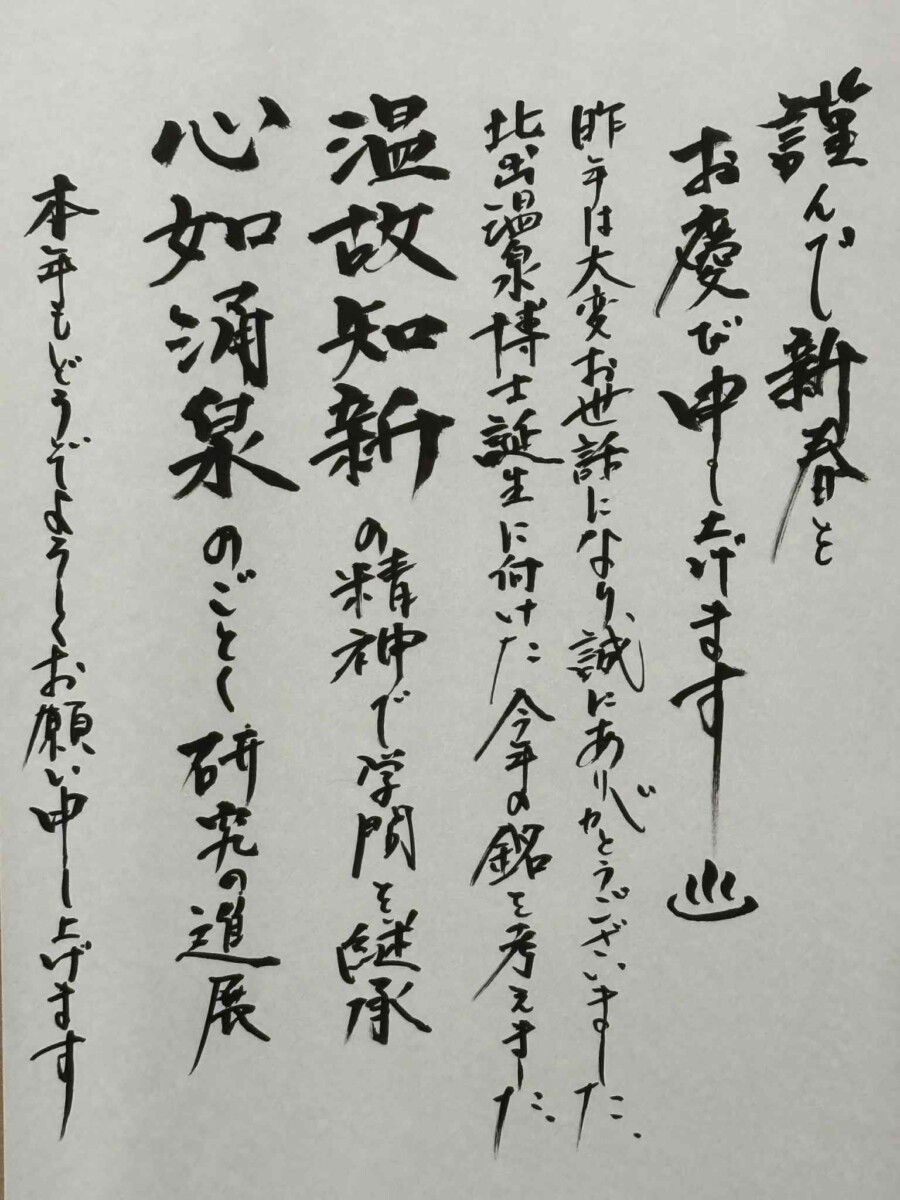 謹んで新春を
お慶び申し上げます♨
昨年は大変お世話になり、誠にありがとうございました.
北出温泉博士誕生に付けた今年の銘を考えました.
温故知新の精神で学問を継承
心如涌泉のごとく研究の進展
本年もどうぞよろしくお願い申し上げます